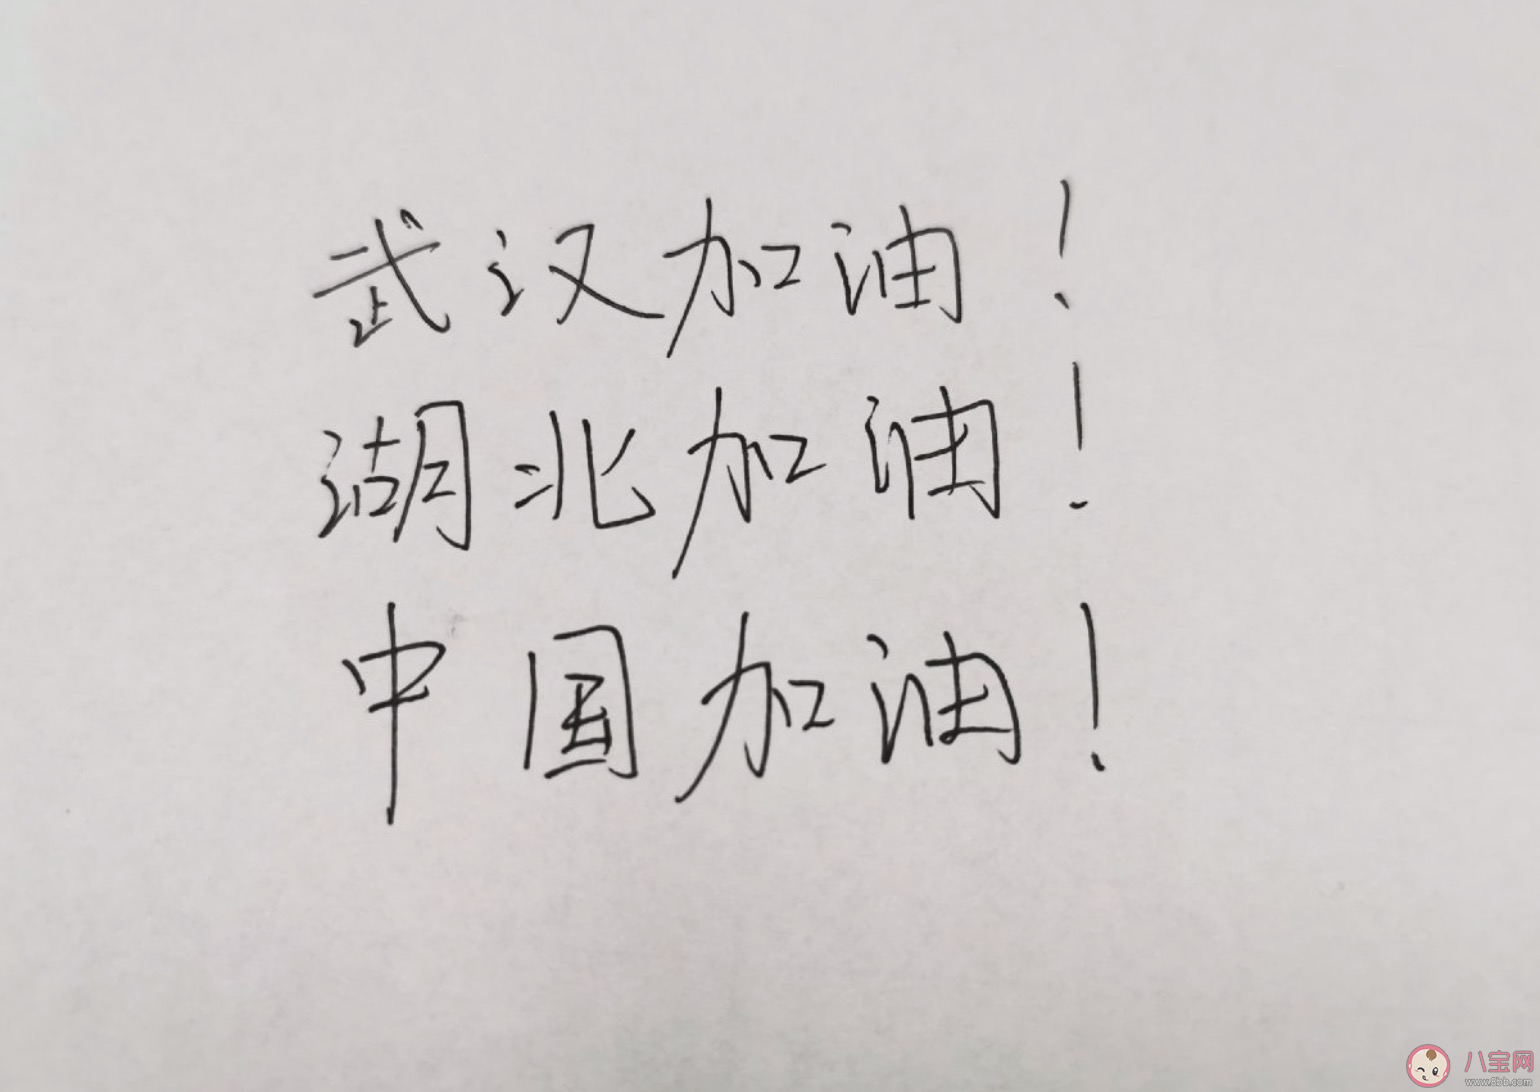 武汉加油！
湖北加油！
中国加油！
八宝网
www.8bb.com